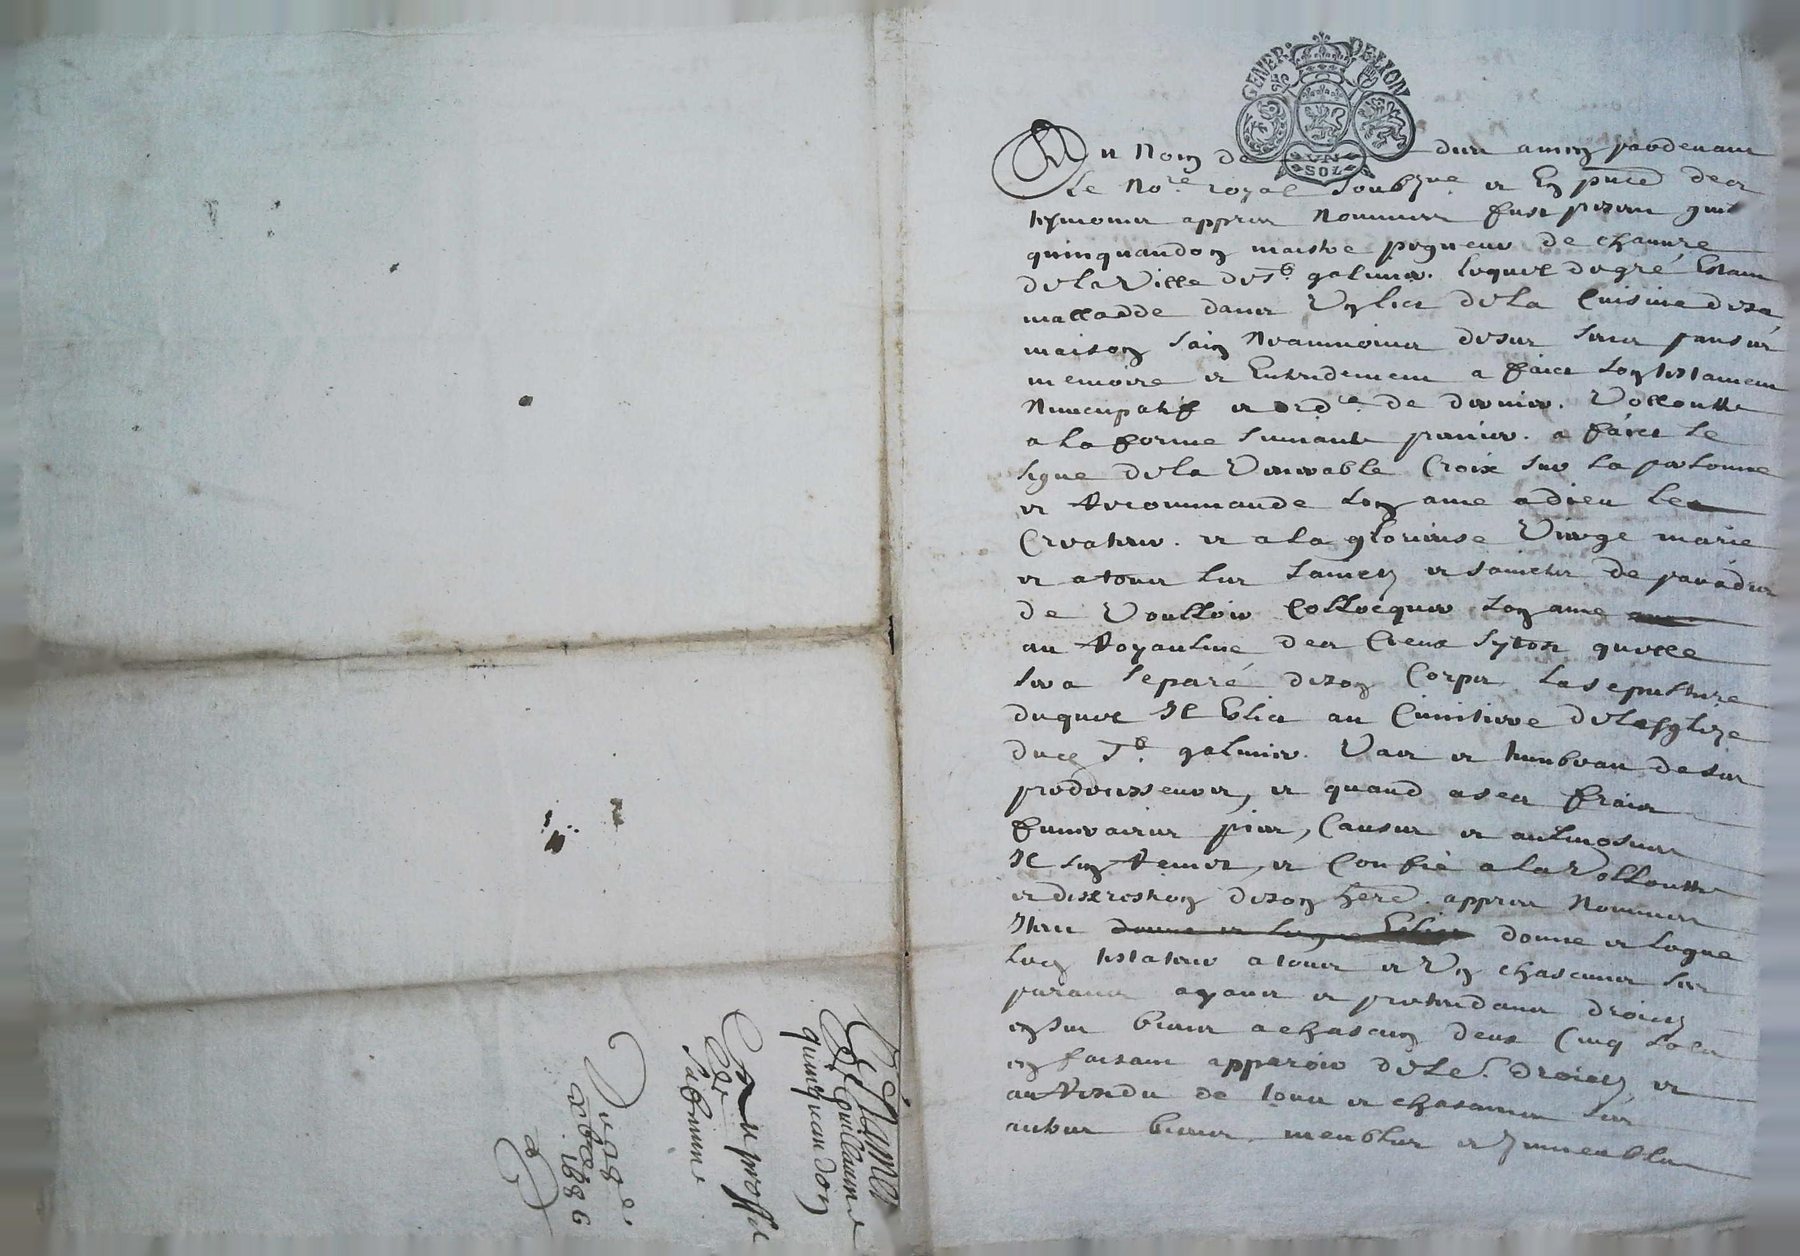 GENER. DE LYON
VN SOL
Au Nom de dieu amen pardevant
Le No.re royal soubz.ne et En p.nce des
tesmoins appres Nommes fust present
quinquandon maistre pigneur de chanvre
de la Ville de S.t galmier. lequel de gré Estant
malladde dans Un lict de la Cuisine de sa
maison sain Neammoins de sur sens pansée
memoire et Entendement a faict son testament
Nuncupatif et ord.ce de dernier. Vollontte
a la forme suivante premier. a faict le
signe de la Venerable Croix sur sa personne
et Recommande son ame a dieu le
Createur. et a la glorieuse Vierge marie
et a tous les saincts et sainctes de paradis
de Voulloir Collocquer son ame
au Royaulme des Cieux sytost quelle
sera separé de son Corps la sepulture
duquel Il Eslict au Cimitiere de lesglize
dud S.t galmier. Vas et tumbeau de ses
predecesseurs, et quand a ses frais
funeraires pies, Causes et aulmosnes
Il sen Remet, et Confie a la Vollontte
et discrestion de son here. appres Nommes
Item donne et legue Eslict donne et legue
led testateur a tous et Un chascuns ses
parans ayans et pretendans droicts
en ses biens a chascun deux Cinq sols
en faisant apparoir de le.s droicts et
au Residu de tous et chascuns ses
autres biens, meubles et Immeubles
Testament
de Guillaume
quinquandon
Au proffit
de